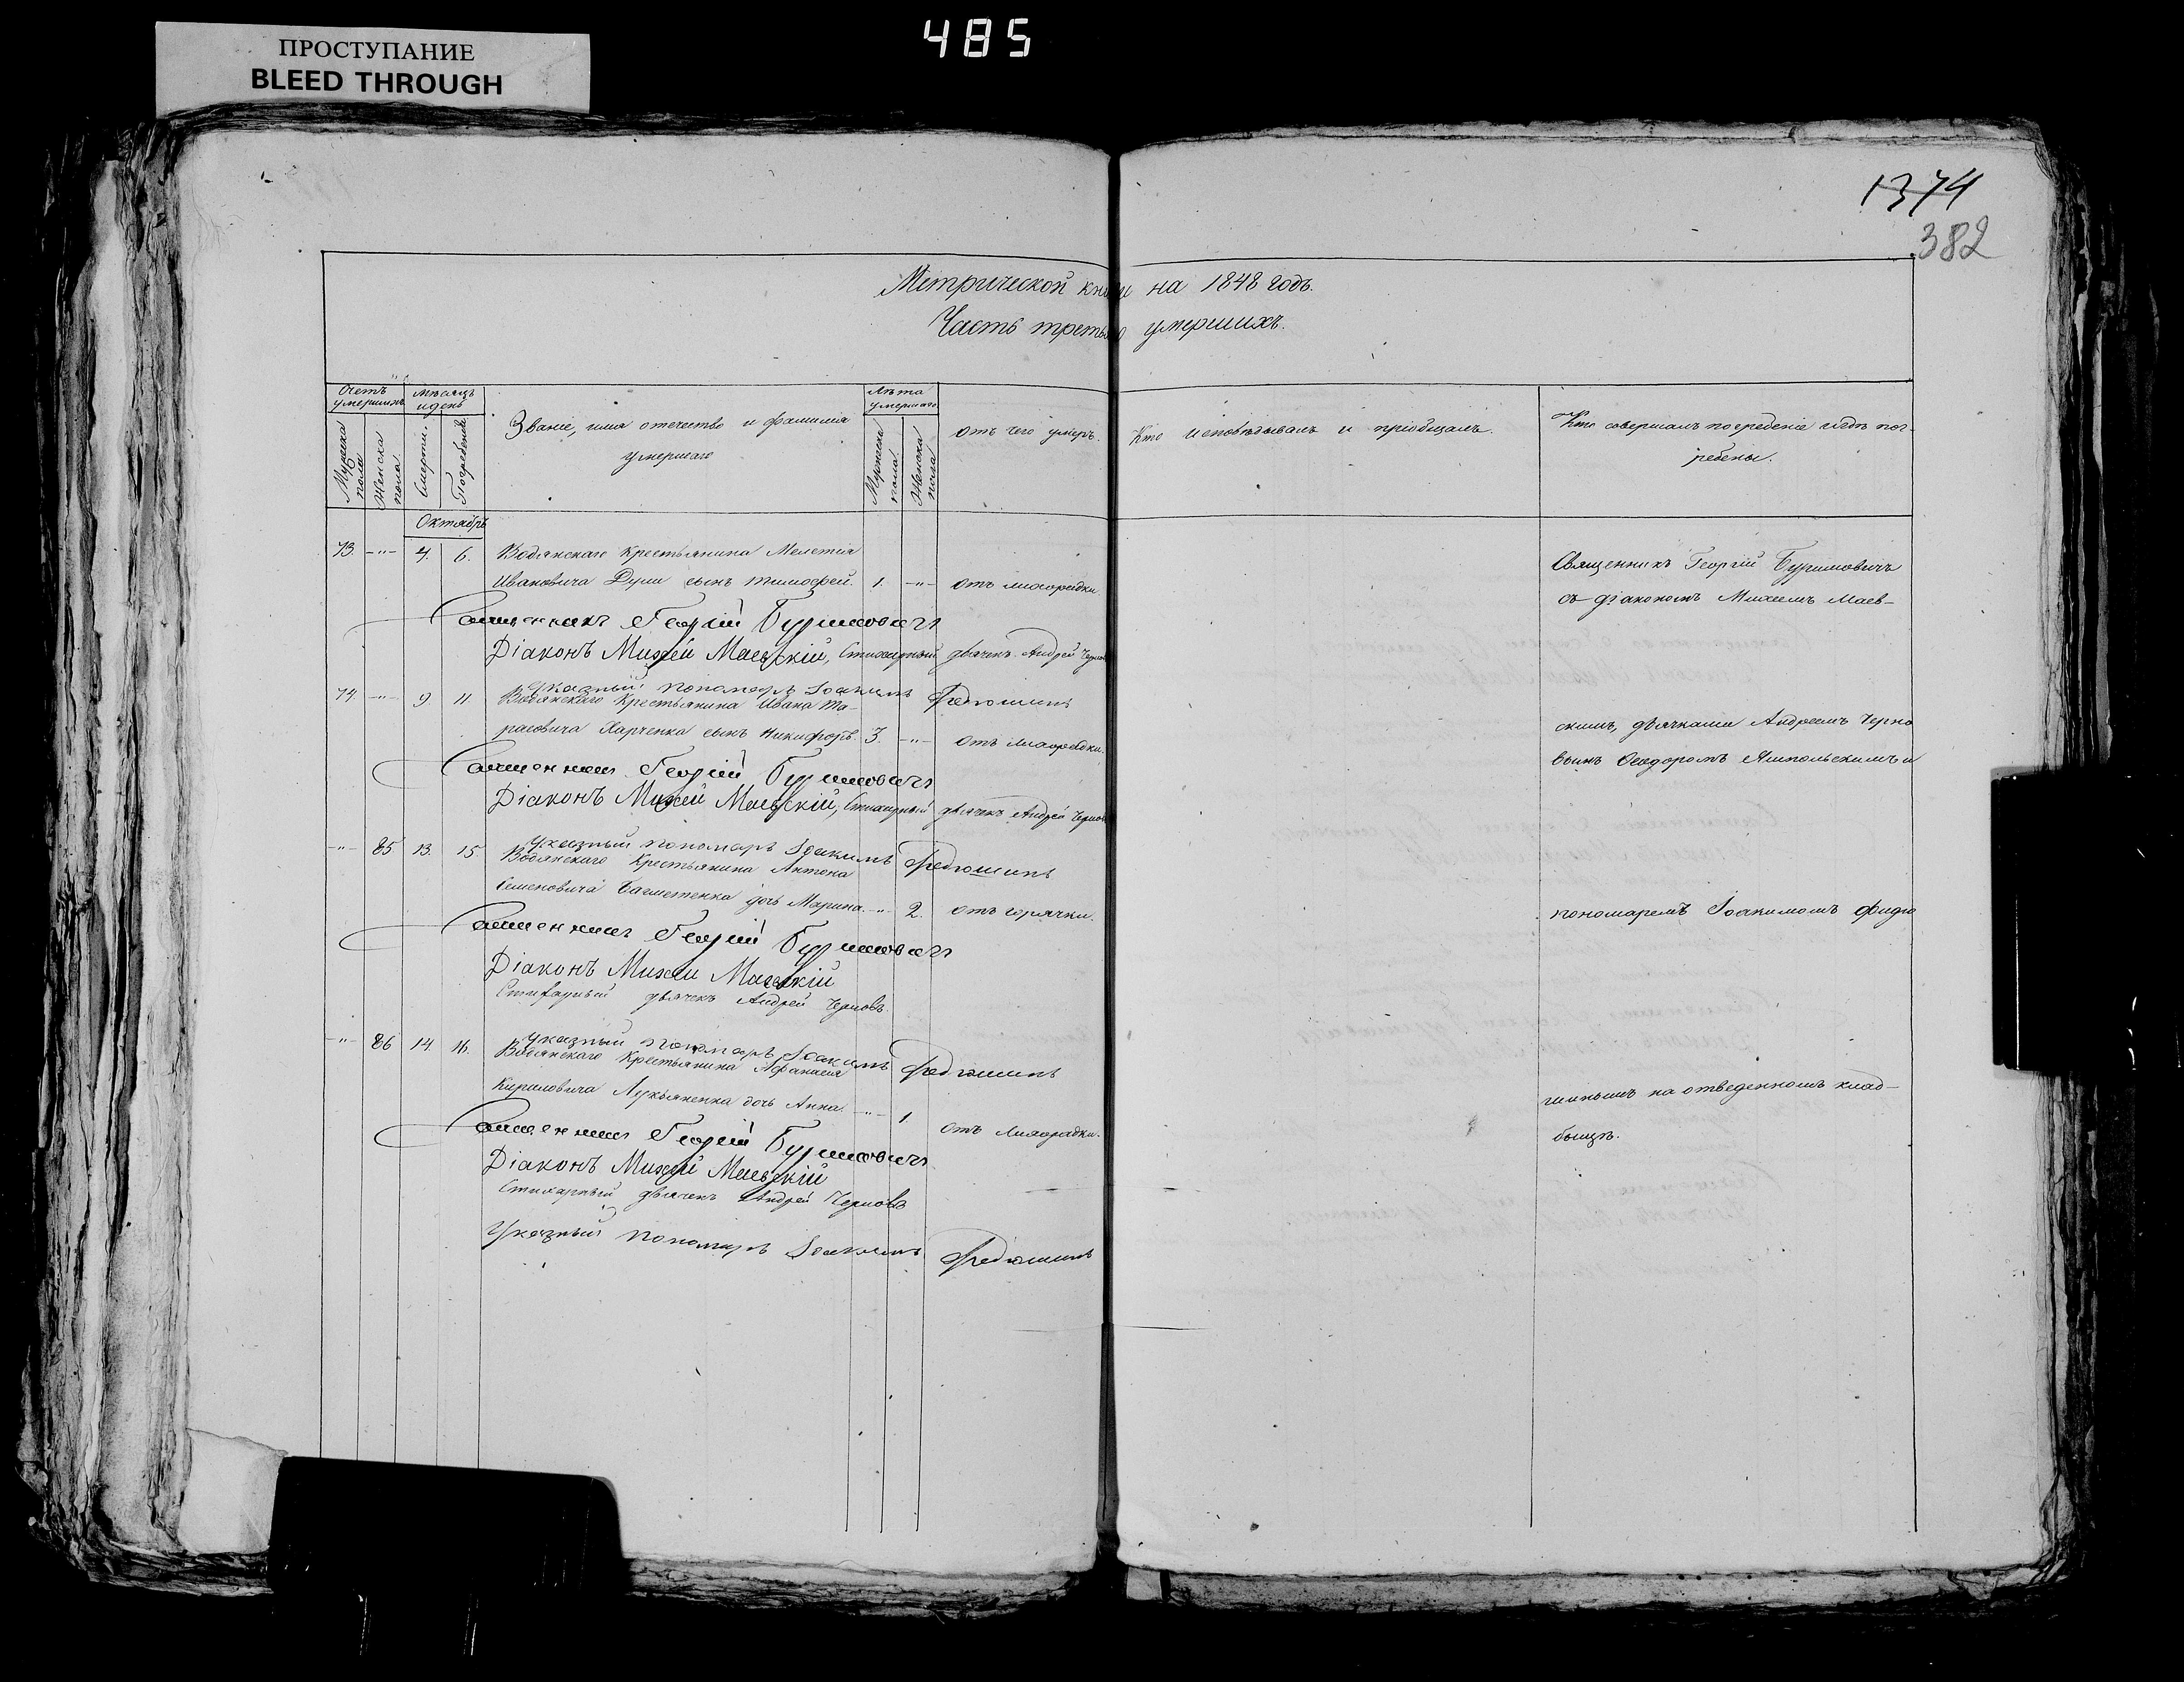 ПРОСТУПАНИЕ
BLEED THROUGH
485
1374
382
Метрической книги на 1848 годъ.
Часть третья о умершихъ.
Счетъ умершихъ
Мужеска пола
Женска пола.
Мѣсяцъ и день
Смерти.
Погребенія
Званіе, имя отечество и фамилія
умершаго
Лѣта умершаго
Мужеска пола.
Женска пола
отъ чего умеръ.
Кто исповѣдывалъ и пріобщалъ.
Кто совершалъ погребеніе и гдѣ пог-
ребены.
Октябрь
73. -"- 4. 6. Водянскаго Крестьянина Мелетія
Ивановича Думи сынъ Тимофей. 1. -"- отъ лихорадки
Священникъ Георгій Буримовичъ
Діаконъ Михей Маевскій, Стихарный дьячекъ Андрей Черновъ
Указный пономарь Іоакимъ Федюшинъ
74. -"- 9. 11. Водянскаго Крестьянина Ивана Та-
расовича Харченка сынъ Никифоръ. 3. -"- отъ лихорадки.
Священникъ Георгій Буримовичъ
Діаконъ Михей Маевскій, Стихарный дьячекъ Андрей Черновъ
Указный пономарь Іоакимъ Федюшинъ
-"- 85 13. 15. Водянскаго Крестьянина Антона
Семеновича Багметенка дочь Марина. -"- 2. отъ горячки.
Священникъ Георгій Буримовичъ
Діаконъ Михей Маевскій
Стихарный дьячекъ Андрей Черновъ.
Указный пономарь Іоакимъ Федюшинъ
-"- 86 14. 16. Водянскаго Крестьянина Афанасія
Кириловича Лукьяненка дочь Анна. -"- 1 отъ лихорадки.
Священникъ Георгій Буримовичъ
Діаконъ Михей Маевскій
Стихарный дьячекъ Андрей Черновъ
Указный пономарь Іоакимъ Федюшинъ
Священникъ Георгій Буримовичъ
съ діакономъ Михеемъ Маев-
скимъ, дьячками Андреемъ Черно
вымъ Феодоромъ Ямпольскимъ и
пономаремъ Іоакимомъ Федю
шинымъ на отведенномъ клад-
бищѣ.